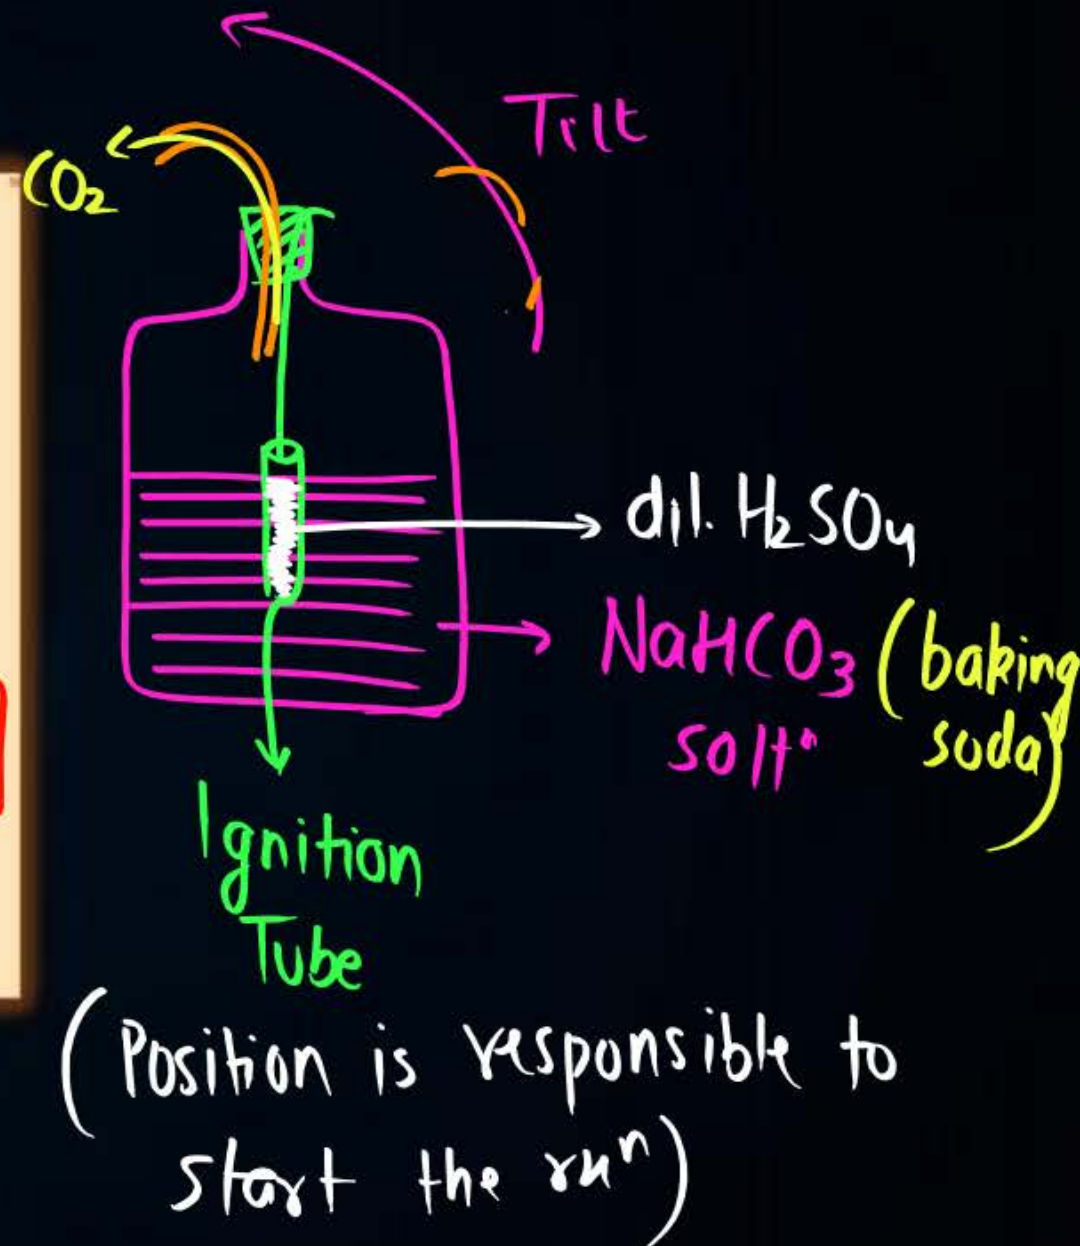 Tilt
CO₂
dil. H₂SO₄
NaHCO₃ (baking
solⁿ soda)
Ignition
Tube
(Position is responsible to
start the rxⁿ)